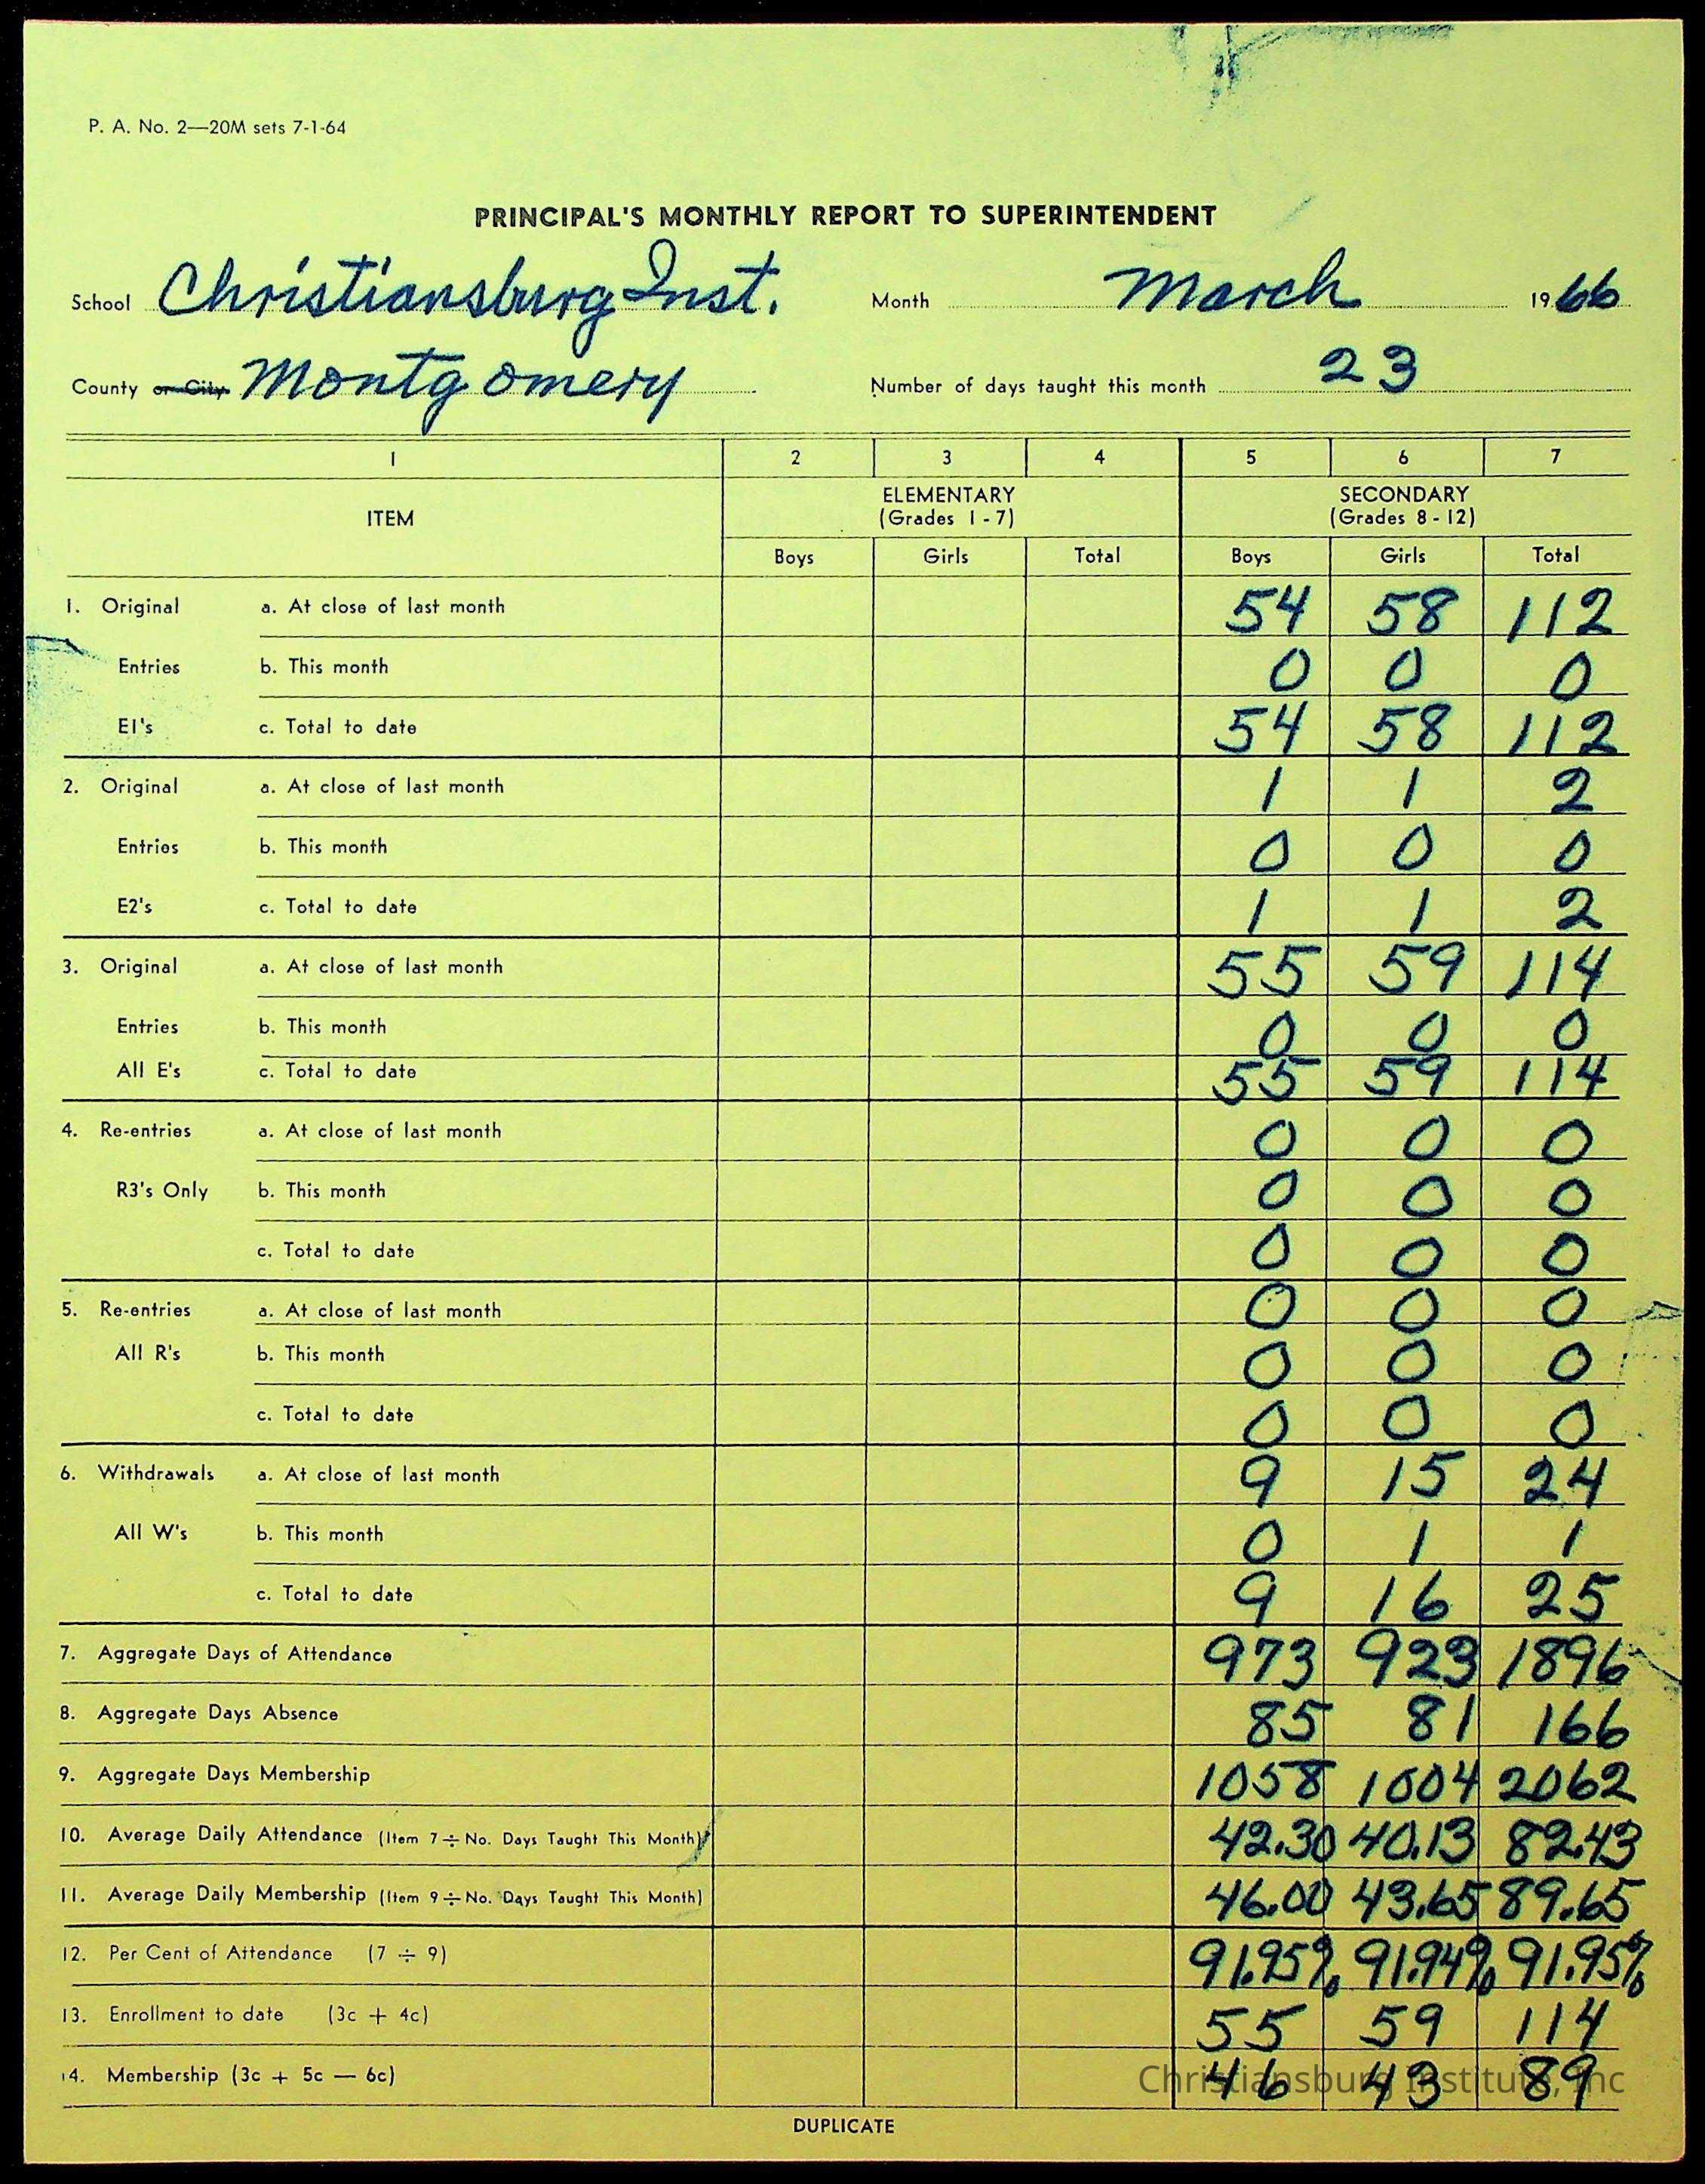 P. A. No. 2—20M sets 7-1-64
PRINCIPAL'S MONTHLY REPORT TO SUPERINTENDENT
School Christiansburg Inst. Month March 1966
County or City Montgomery Number of days taught this month 23
1 2 3 4 5 6 7
ITEM ELEMENTARY (Grades 1-7) SECONDARY (Grades 8-12)
Boys Girls Total Boys Girls Total
1. Original a. At close of last month 54 58 112
Entries b. This month 0 0 0
E1's c. Total to date 54 58 112
2. Original a. At close of last month 1 1 2
Entries b. This month 0 0 0
E2's c. Total to date 1 1 2
3. Original a. At close of last month 55 59 114
Entries b. This month 0 0 0
All E's c. Total to date 55 59 114
4. Re-entries a. At close of last month 0 0 0
R3's Only b. This month 0 0 0
c. Total to date 0 0 0
5. Re-entries a. At close of last month 0 0 0
All R's b. This month 0 0 0
c. Total to date 0 0 0
6. Withdrawals a. At close of last month 9 15 24
All W's b. This month 0 1 1
c. Total to date 9 16 25
7. Aggregate Days of Attendance 973 923 1896
8. Aggregate Days Absence 85 81 166
9. Aggregate Days Membership 1058 1004 2062
10. Average Daily Attendance (Item 7 ÷ No. Days Taught This Month) 42.30 40.13 82.43
11. Average Daily Membership (Item 9 ÷ No. Days Taught This Month) 46.00 43.65 89.65
12. Per Cent of Attendance (7 ÷ 9) 91.95% 91.94% 91.95%
13. Enrollment to date (3c + 4c) 55 59 114
14. Membership (3c + 5c — 6c) 46 43 89
Christiansburg Institute, Inc
DUPLICATE